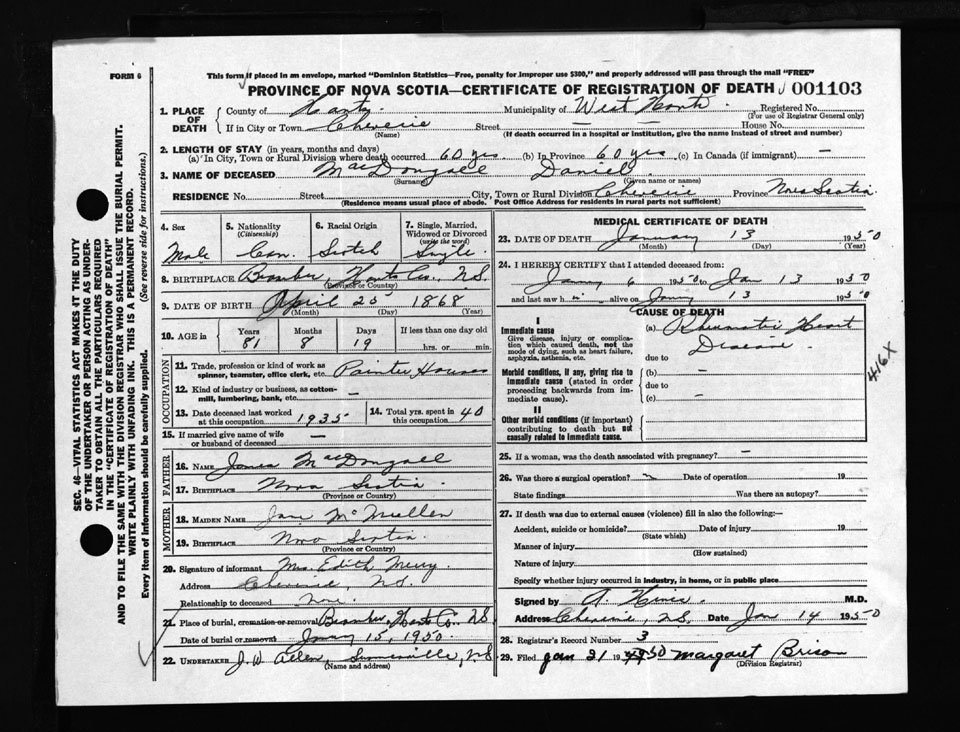 FORM 6
This form if placed in an envelope, marked "Dominion Statistics—Free, penalty for improper use $300," and properly addressed will pass through the mail "FREE"
PROVINCE OF NOVA SCOTIA—CERTIFICATE OF REGISTRATION OF DEATH 001103
1. PLACE OF DEATH County of Hants Municipality of West Hants Registered No.
(For use of Registrar General only)
If in City or Town Cheverie Street — House No. —
(Name) (If death occurred in a hospital or institution, give the name instead of street and number)
2. LENGTH OF STAY (in years, months and days)
(a) In City, Town or Rural Division where death occurred 60 yrs (b) In Province 60 yrs. (c) In Canada (if immigrant) —
3. NAME OF DECEASED MacDougall Daniel
(Surname) (Given name or names)
RESIDENCE No. Street City, Town or Rural Division Cheverie Province Nova Scotia
(Residence means usual place of abode. Post Office Address for residents in rural parts not sufficient)
4. Sex 5. Nationality (Citizenship) 6. Racial Origin 7. Single, Married, Widowed or Divorced (write the word)
Male Can. Scotch Single
8. BIRTHPLACE Bramber, Hants Co., N.S.
(Province or Country)
9. DATE OF BIRTH April 25 1868
(Month) (Day) (Year)
10. AGE in Years Months Days If less than one day old
81 8 19 hrs. or min.
OCCUPATION
11. Trade, profession or kind of work as spinner, teamster, office clerk, etc. Painter Houses
12. Kind of industry or business, as cotton-mill, lumbering, bank, etc. —
13. Date deceased last worked at this occupation 1935 14. Total yrs. spent in this occupation 40
15. If married give name of wife or husband of deceased —
FATHER
16. NAME James MacDougall
17. BIRTHPLACE Nova Scotia
(Province or Country)
MOTHER
18. MAIDEN NAME Jane McMullen
19. BIRTHPLACE Nova Scotia
(Province or Country)
20. Signature of informant Mrs. Edith Merry
Address Cheverie, N.S.
Relationship to deceased None
21. Place of burial, cremation or removal Bramber, Hants Co., N.S.
Date of burial or removal Janry 15, 1950.
22. UNDERTAKER J. W. Allen, Summerville, N.S.
(Name and address)
MEDICAL CERTIFICATE OF DEATH
23. DATE OF DEATH January 13 1950
(Month) (Day) (Year)
24. I HEREBY CERTIFY that I attended deceased from:
Janry 6 1950 to Jan 13 1950
and last saw him alive on Janry 13 1950
CAUSE OF DEATH
I
Immediate cause
Give disease, injury or complication which caused death, not the mode of dying, such as heart failure, asphyxia, asthenia, etc.
(a) Rheumatic Heart Disease
due to
Morbid conditions, if any, giving rise to immediate cause (stated in order proceeding backwards from immediate cause).
(b) —
due to
(c) —
II
Other morbid conditions (if important) contributing to death but not causally related to immediate cause.
416X
25. If a woman, was the death associated with pregnancy? —
26. Was there a surgical operation? Date of operation 19
State findings Was there an autopsy?
27. If death was due to external causes (violence) fill in also the following:—
Accident, suicide or homicide? Date of injury 19
(State which)
Manner of injury
(How sustained)
Nature of injury
Specify whether injury occurred in industry, in home, or in public place
Signed by M.D.
Address Cheverie, N.S. Date Jan 14 1950
28. Registrar's Record Number 3
29. Filed Jan 21 1950 Margaret Brison
(Division Registrar)
SEC. 46—VITAL STATISTICS ACT MAKES IT THE DUTY
OF THE UNDERTAKER OR PERSON ACTING AS UNDER-
TAKER TO OBTAIN ALL THE PARTICULARS REQUIRED
IN THE "CERTIFICATE OF REGISTRATION OF DEATH"
AND TO FILE THE SAME WITH THE DIVISION REGISTRAR WHO SHALL ISSUE THE BURIAL PERMIT.
WRITE PLAINLY WITH UNFADING INK. THIS IS A PERMANENT RECORD.
Every item of Information should be carefully supplied. (See reverse side for instructions.)